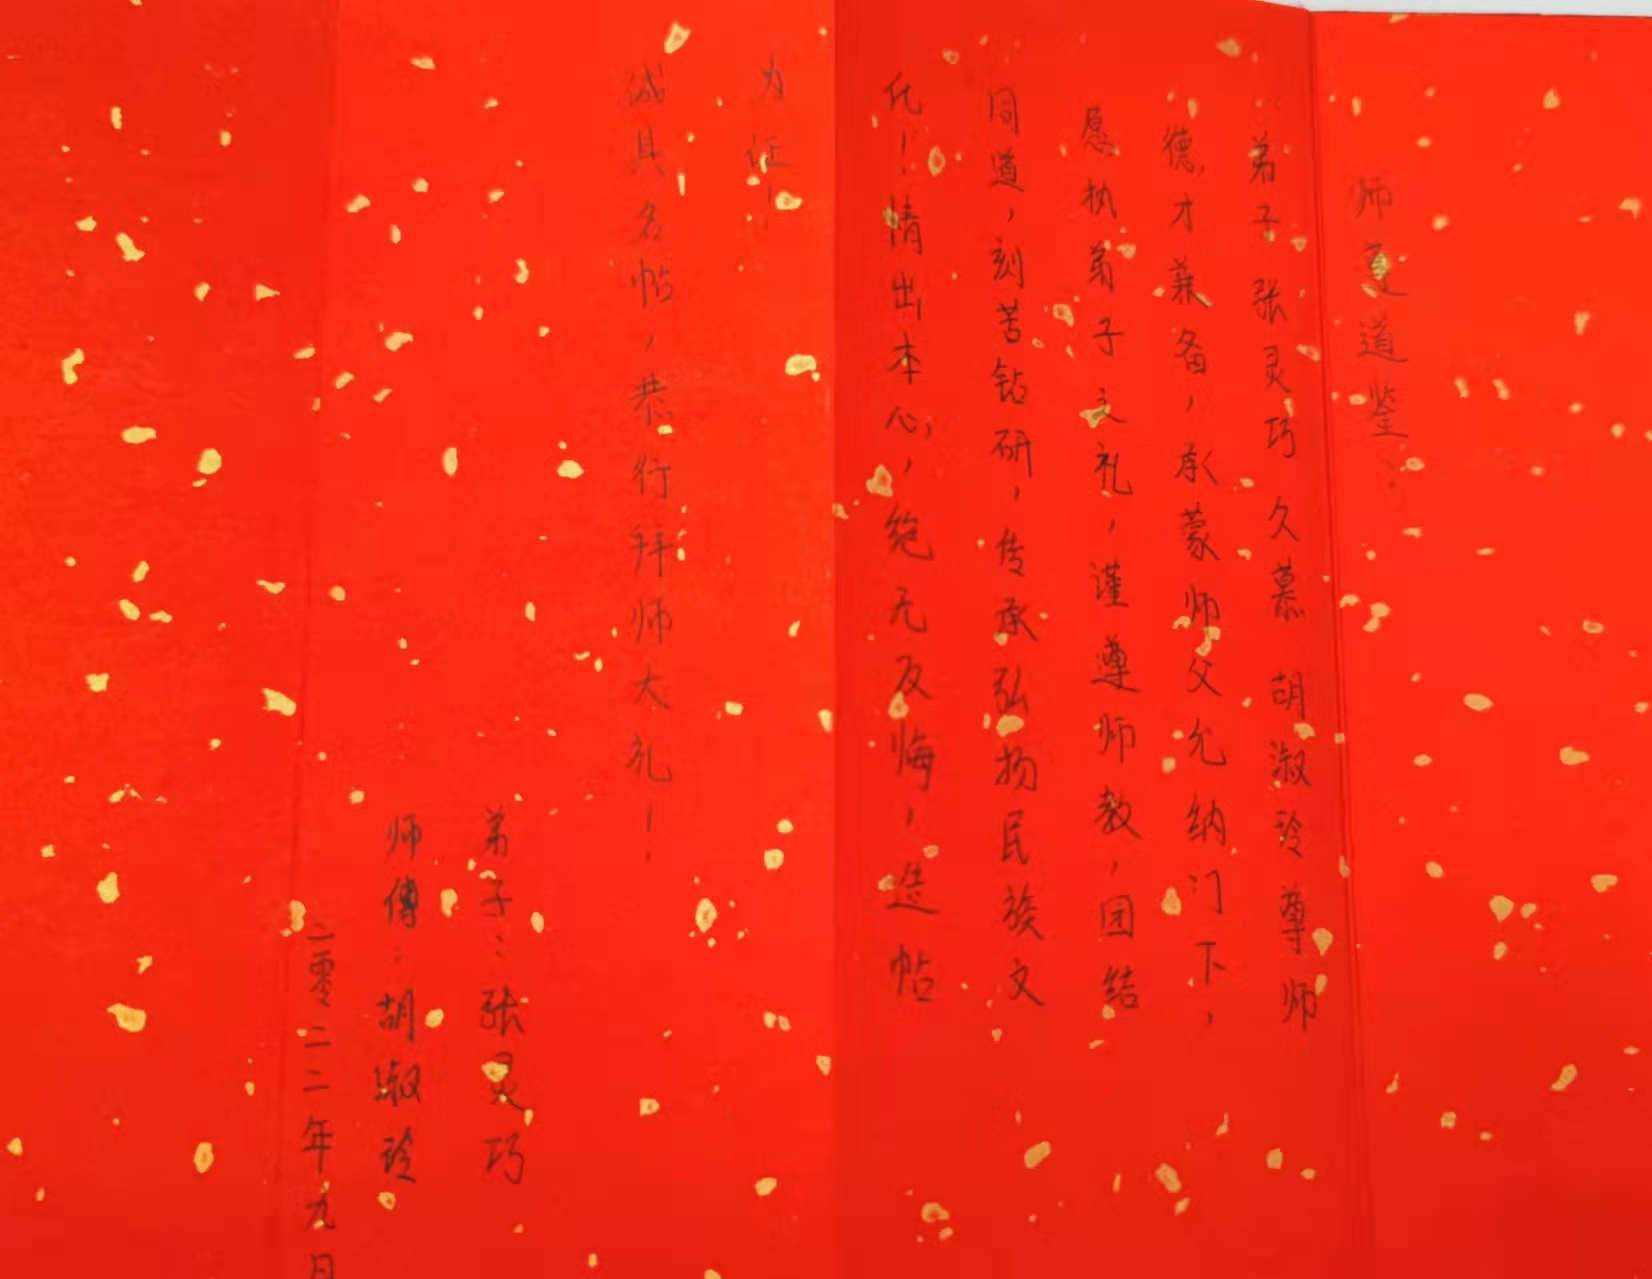 师尊道鉴：
弟子张灵巧 久慕 胡淑玲尊师
德才兼备，承蒙师父允纳门下，
愿执弟子之礼，谨遵师教，团结
同道，刻苦钻研，传承弘扬民族文
化！情出本心，绝无反悔，造帖
为证！
诚具名帖，恭行拜师大礼！
弟子：张灵巧
师傅：胡淑玲
二零二二年九月